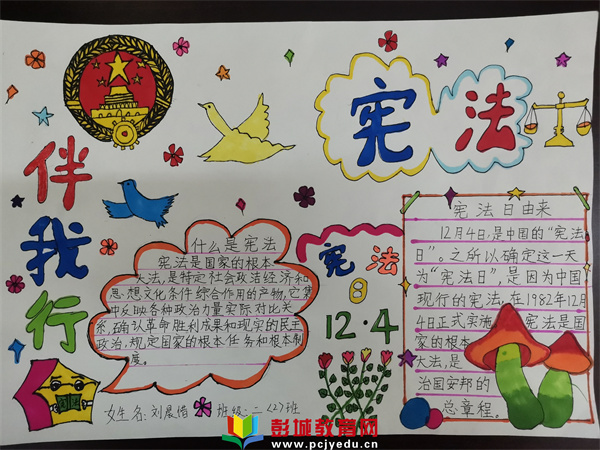 宪法
伴我行
什么是宪法
宪法是国家的根本
大法,是特定社会政治经济和
思想文化条件综合作用的产物,它集
中反映各种政治力量实际对比关
系,确认革命胜利成果和现实的民主
政治,规定国家的根本任务和根本制
度。
宪法
日
12·4
宪法日由来
12月4日,是中国的“宪法
日”。之所以确定这一天
为“宪法日”,是因为中国
现行的宪法,在1982年12月
4日正式实施。宪法是国
家的根本
大法,是
治国安邦的
总章程。
姓名:刘晨 班级:二〈2〉班
彭城教育网
www.pcjyedu.cn